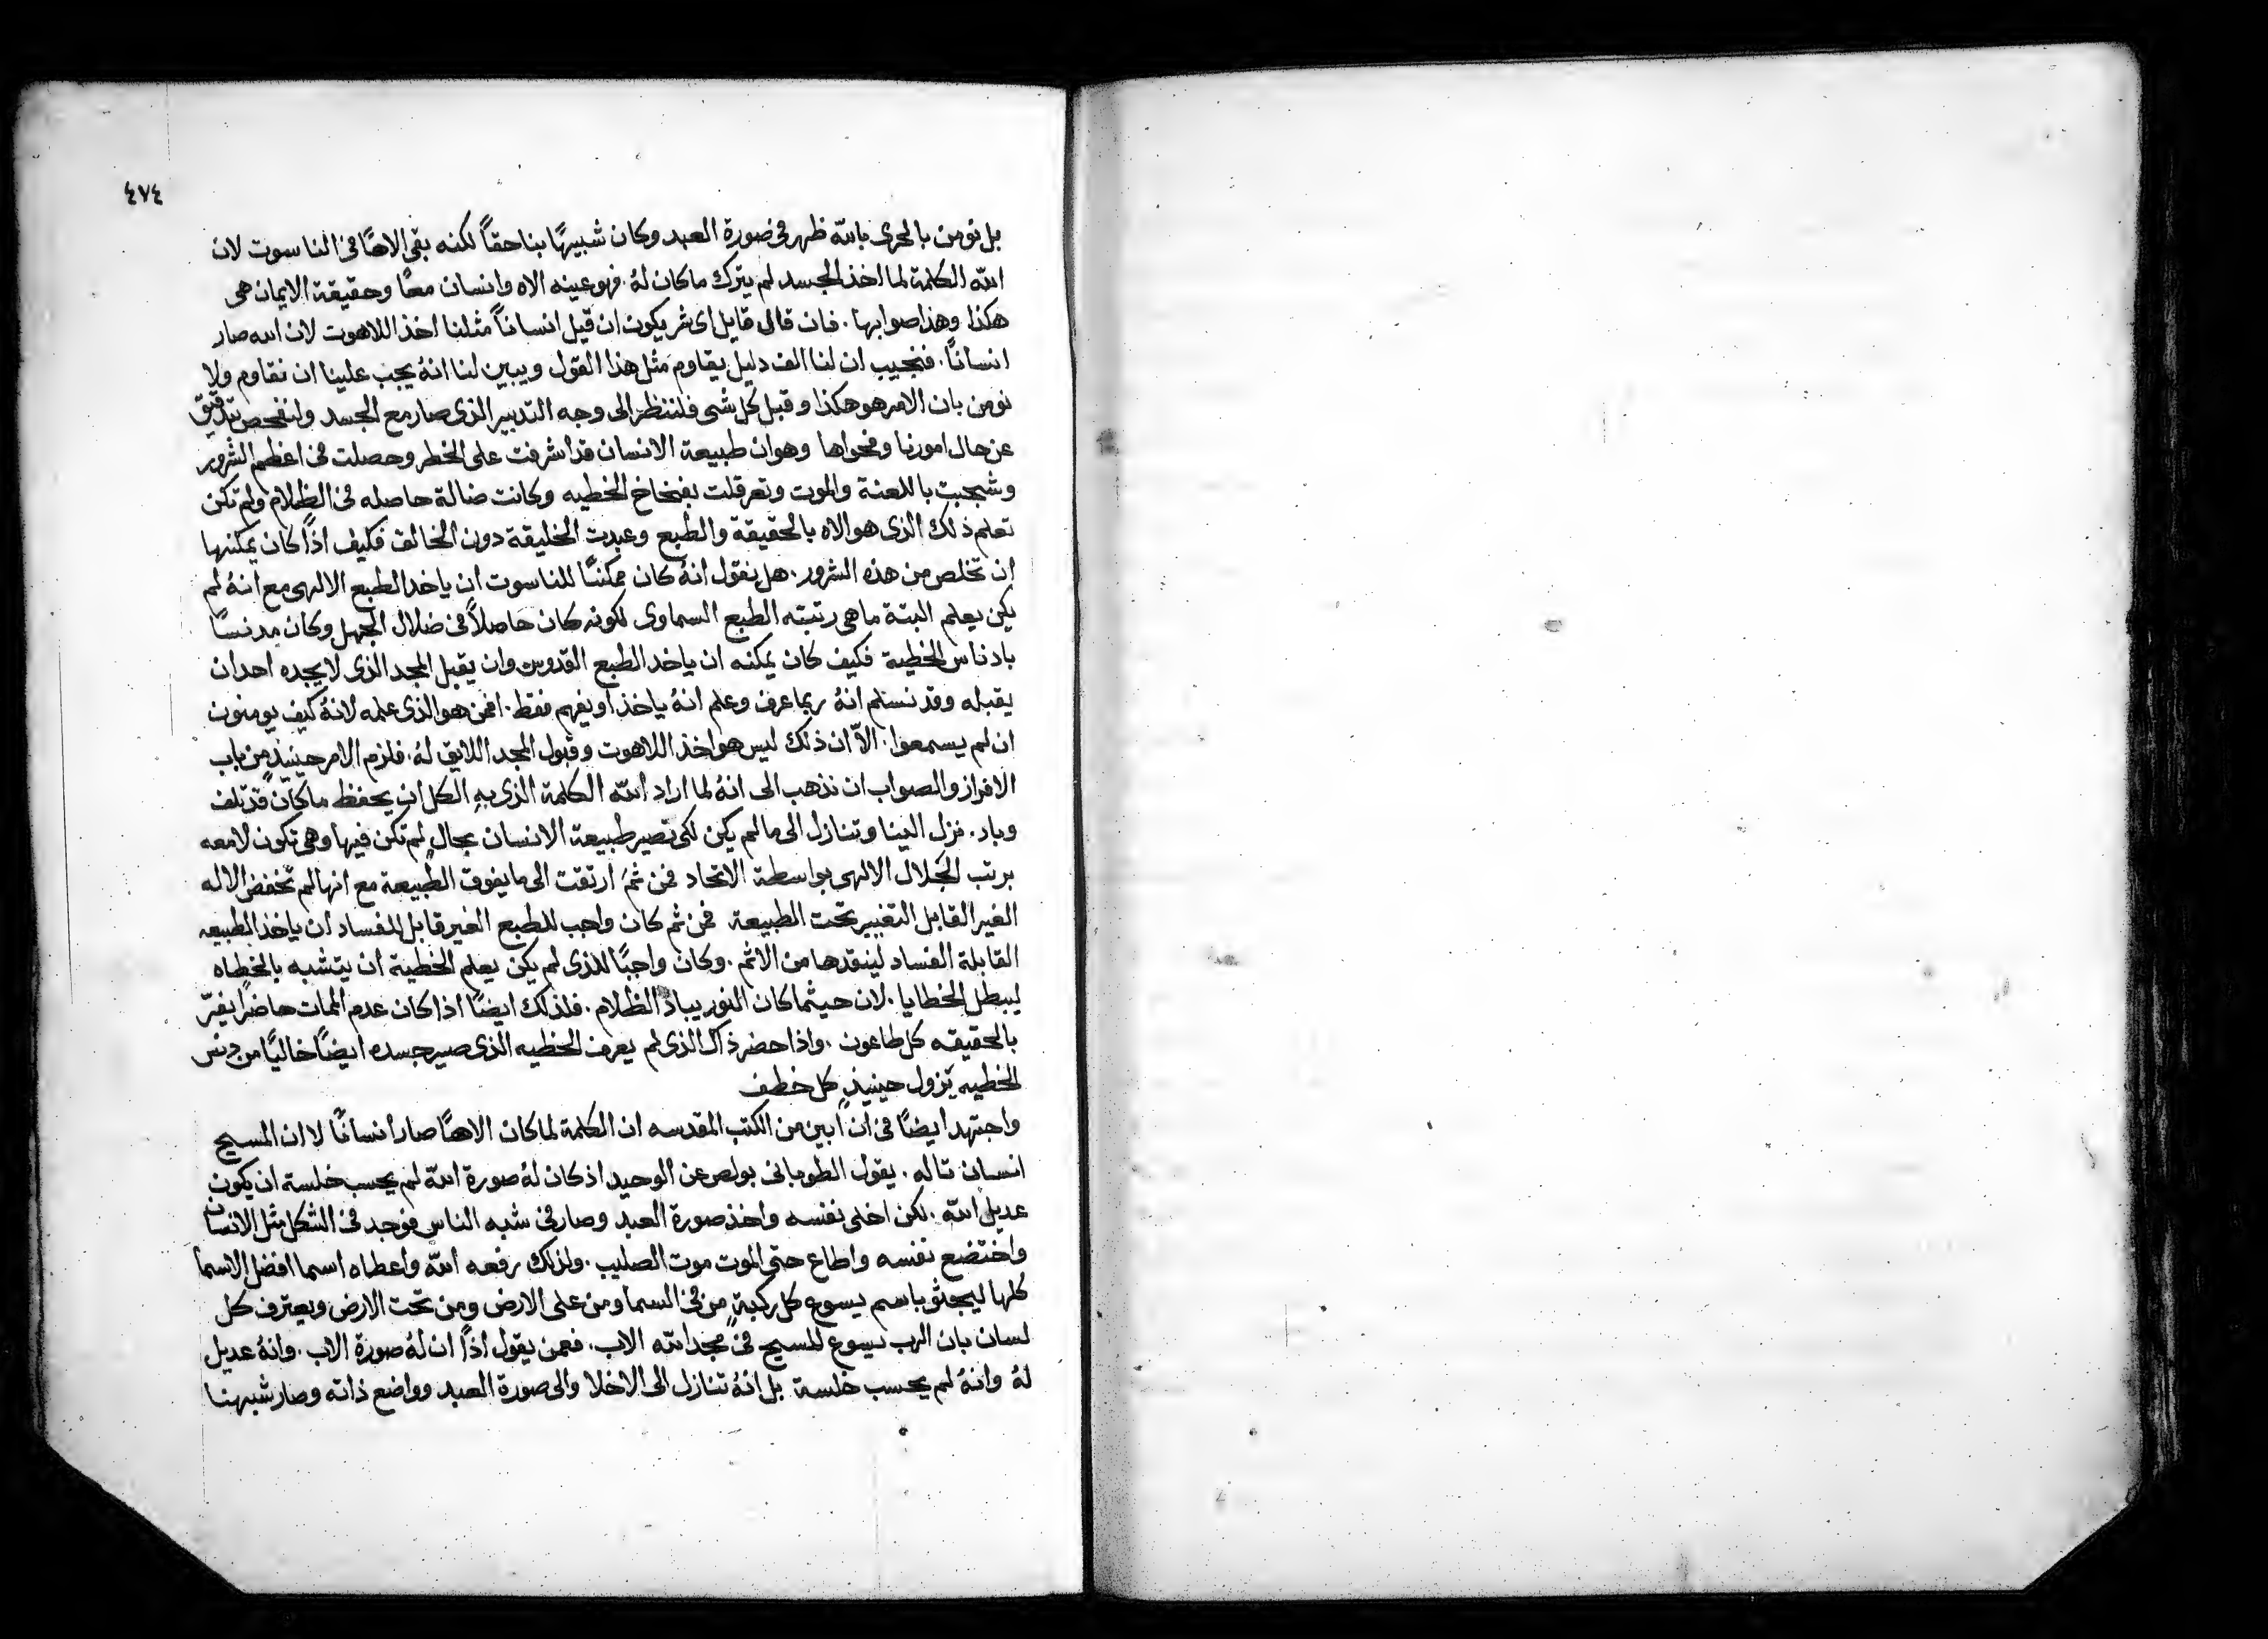 ٤٧٤
بل نومن بالحرى بالله ظهر فى صورة العبد وكان شبيهًا بنا حقاً لكنه بقى الاهًا فى الناسوت لان
الله الكلمة لما اخذ الجسد لم يترك ما كان لهُ. فهو عينه الاه وانسان معًا وحقيقة الايمان هى
هكذا وهذا صوابها. فان قال قايل اى شر يكون ان قيل انساناً مثلنا اخذ اللاهوت لان الله صار
انساناً. فنجيب ان لنا الف دليل يقاوم مثل هذا القول ويبين لنا انهُ يجب علينا ان نقاوم ولا
نومن بان الامر هو هكذا وقبل كل شى فلننظر الى وجه التدبير الذى صار مع الجسد ولنفحص بتدقيق
عن حال امورنا وفحواها وهو ان طبيعة الانسان قد اشرفت على الخطر وحصلت فى اعظم الشرور
وشجبت باللعنة والموت وتعرقلت بفخاخ الخطيه وكانت ضالة حاصله فى الظلام ولم تكن
تعلم ذلك الذى هو الاه بالحقيقة والطبع وعبدت الخليقة دون الخالق فكيف اذاً كان يمكنها
ان تخلص من هذه الشرور. هل نقول انهُ كان ممكنًا للناسوت ان ياخد الطبع الالهى مع انهُ لم
يكن يعلم البتة ما هى رتبته الطبع السماوى لكونه كان حاصلاً فى ضلال الجهل وكان مدنسًا
بادناس الخطية فكيف كان يمكنه ان ياخد الطبع القدوس وان يقبل المجد الذى لا يجده احد ان
يقبله وقد نسلم انهُ ربما عرف وعلم انهُ ياخذ او يفهم فقط. افمن هو الذى علمه لانهُ كيف يومنون
ان لم يسمعوا. الاّ ان ذلك ليس هو اخذ اللاهوت وقبول المجد اللايق لهُ. فلزم الامر حينيذٍ من باب
الافراز والصواب ان نذهب الى انهُ لما اراد الله الكلمة الذى بهِ الكل ان يحفظ ما كان قد تلف
وباد. نزل الينا وتنازل الى ما لم يكن لكى تصير طبيعة الانسان بحالٍ لم تكن فيها وهى تكون لامعه
برتب الجلال الالهى بواسطة الاتحاد فمن ثمَ ارتقت الى ما يفوق الطبيعة مع انها لم تخفض الاله
الغير القابل التغيير تحت الطبيعة فمن ثم كان واجب للطبع الغير قابل للفساد ان ياخذ الطبيعه
القابلة الفساد لينقدها من الاثم. وكان واجبًا للذى لم يكن يعلم الخطية ان يتشبه بالخطاه
ليبطل الخطايا. لان حيثما كان النور يباد الظلام. فلذلك ايضًا اذا كان عدم الممات حاضرًا يفرّ
بالحقيقه كل طاعون. واذا حضر ذاك الذى لم يعرف الخطيه الذى صير جسده ايضًا خاليًا من دنس
الخطيه تزول حينيذٍ كل خطف
واجتهد ايضًا فى ان ابين من الكتب المقدسه ان الكلمة لما كان الاهًا صار انسانًا لا ان المسيح
انسان تاله. يقول الطوبانى بولص عن الوحيد اذ كان لهُ صورة الله لم يحسب خلسة ان يكون
عديل الله. لكن اخلى نفسه واخذ صورة العبد وصار فى شبه الناس فوجد فى الشكل مثل الانسان
واختضع نفسه واطاع حتى الموت موت الصليب. ولذلك رفعه الله واعطاه اسما افضل الاسما
كلها ليجثو باسم يسوع كل ركبةٍ من فى السما ومن على الارض ومن تحت الارض ويعترف كل
لسان بان الرب يسوع المسيح فى مجد الله الاب. فعمن يقول اذاً ان لهُ صورة الاب. وانهُ عديل
لهُ وانهُ لم يحسب خلسة بل انهُ تنازل الى الاخلا والى صورة العبد وواضع ذاته وصار شبهنا